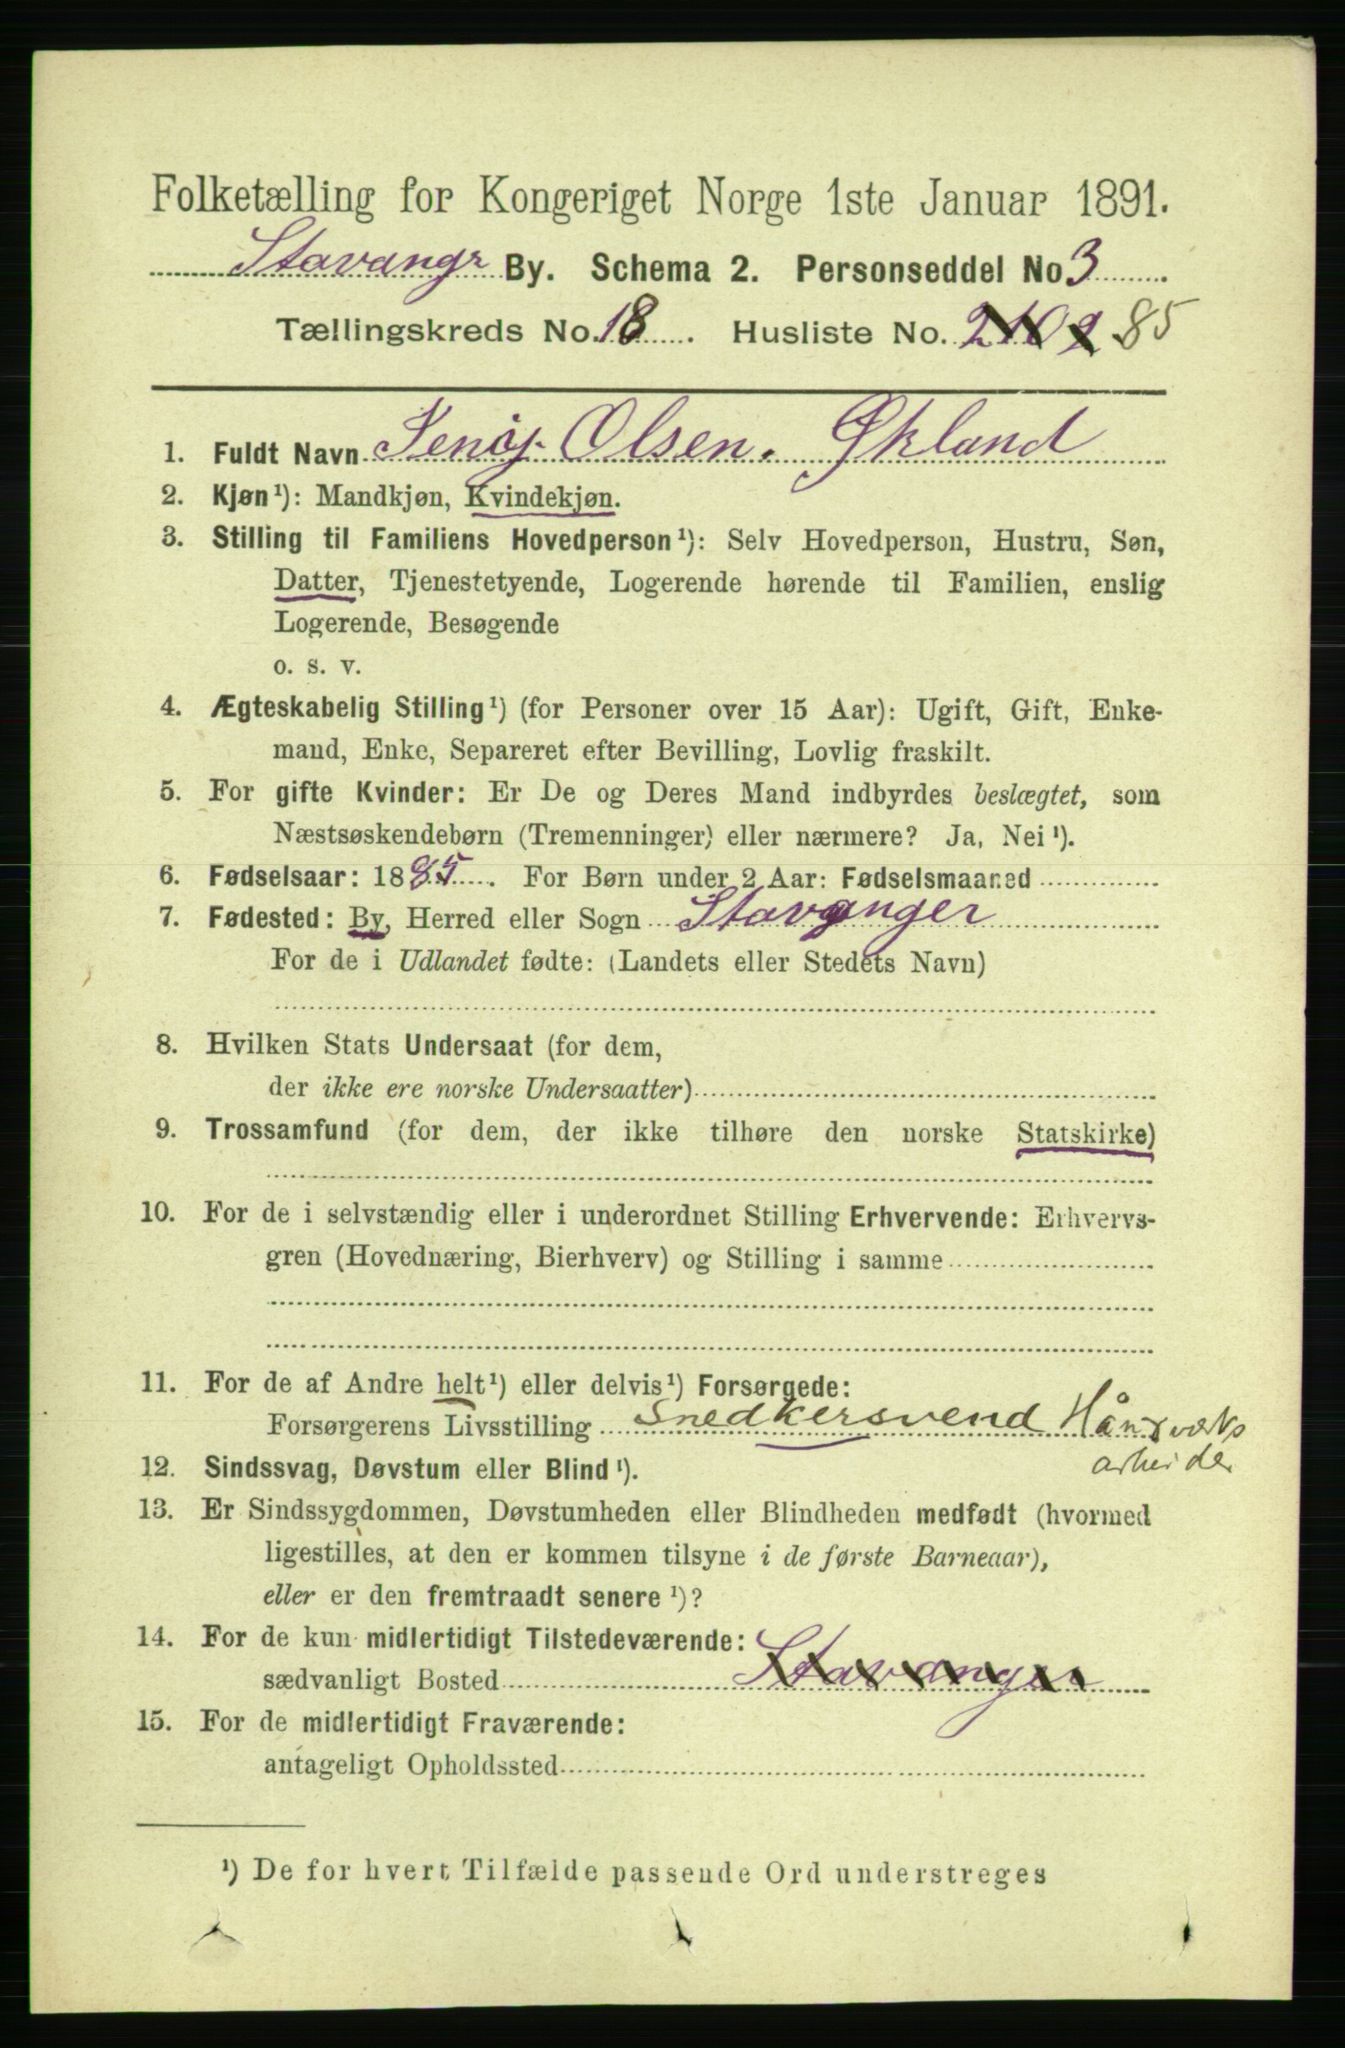 Folketælling for Kongeriget Norge 1ste Januar 1891.
Stavangr By. Schema 2. Personseddel No 3
Tællingskreds No. 18. Husliste No. 85
1. Fuldt Navn Olsen. Økland
2. Kjøn¹): Mandkjøn, Kvindekjøn.
3. Stilling til Familiens Hovedperson¹): Selv Hovedperson, Hustru, Søn,
Datter, Tjenestetyende, Logerende hørende til Familien, enslig
Logerende, Besøgende
o. s. v.
4. Ægteskabelig Stilling¹) (for Personer over 15 Aar): Ugift, Gift, Enke-
mand, Enke, Separeret efter Bevilling, Lovlig fraskilt.
5. For gifte Kvinder: Er De og Deres Mand indbyrdes beslægtet, som
Næstsøskendebørn (Tremenninger) eller nærmere? Ja, Nei¹).
6. Fødselsaar: 1885. For Børn under 2 Aar: Fødselsmaaned
7. Fødested: By, Herred eller Sogn Stavanger
For de i Udlandet fødte: (Landets eller Stedets Navn)
8. Hvilken Stats Undersaat (for dem,
der ikke ere norske Undersaatter)
9. Trossamfund (for dem, der ikke tilhøre den norske Statskirke)
10. For de i selvstændig eller i underordnet Stilling Erhvervende: Erhvervs-
gren (Hovednæring, Bierhverv) og Stilling i samme
11. For de af Andre helt¹) eller delvis¹) Forsørgede:
Forsørgerens Livsstilling Snedkersvend Håndværks
arbeider
12. Sindssvag, Døvstum eller Blind¹).
13. Er Sindssygdommen, Døvstumheden eller Blindheden medfødt (hvormed
ligestilles, at den er kommen tilsyne i de første Barneaar),
eller er den fremtraadt senere¹)?
14. For de kun midlertidigt Tilstedeværende:
sædvanligt Bosted Stavanger
15. For de midlertidigt Fraværende:
antageligt Opholdssted
¹) De for hvert Tilfælde passende Ord understreges